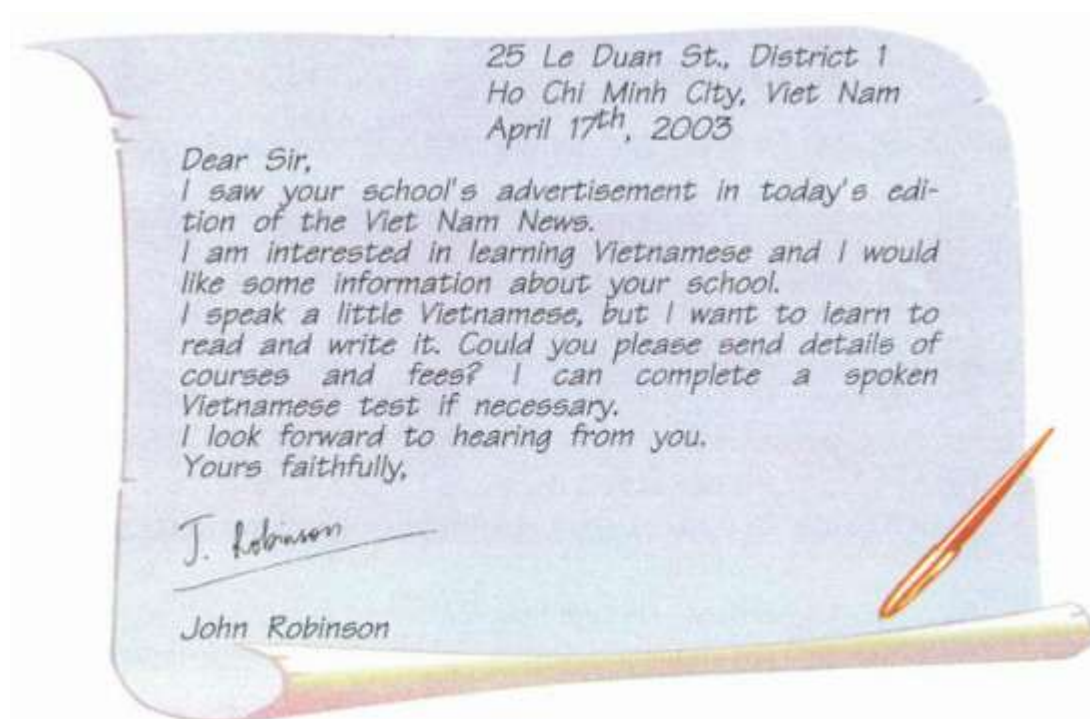 25 Le Duan St., District 1
Ho Chi Minh City, Viet Nam
April 17th, 2003
Dear Sir,
I saw your school's advertisement in today's edi-
tion of the Viet Nam News.
I am interested in learning Vietnamese and I would
like some information about your school.
I speak a little Vietnamese, but I want to learn to
read and write it. Could you please send details of
courses and fees? I can complete a spoken
Vietnamese test if necessary.
I look forward to hearing from you.
Yours faithfully,
J. Robinson
John Robinson